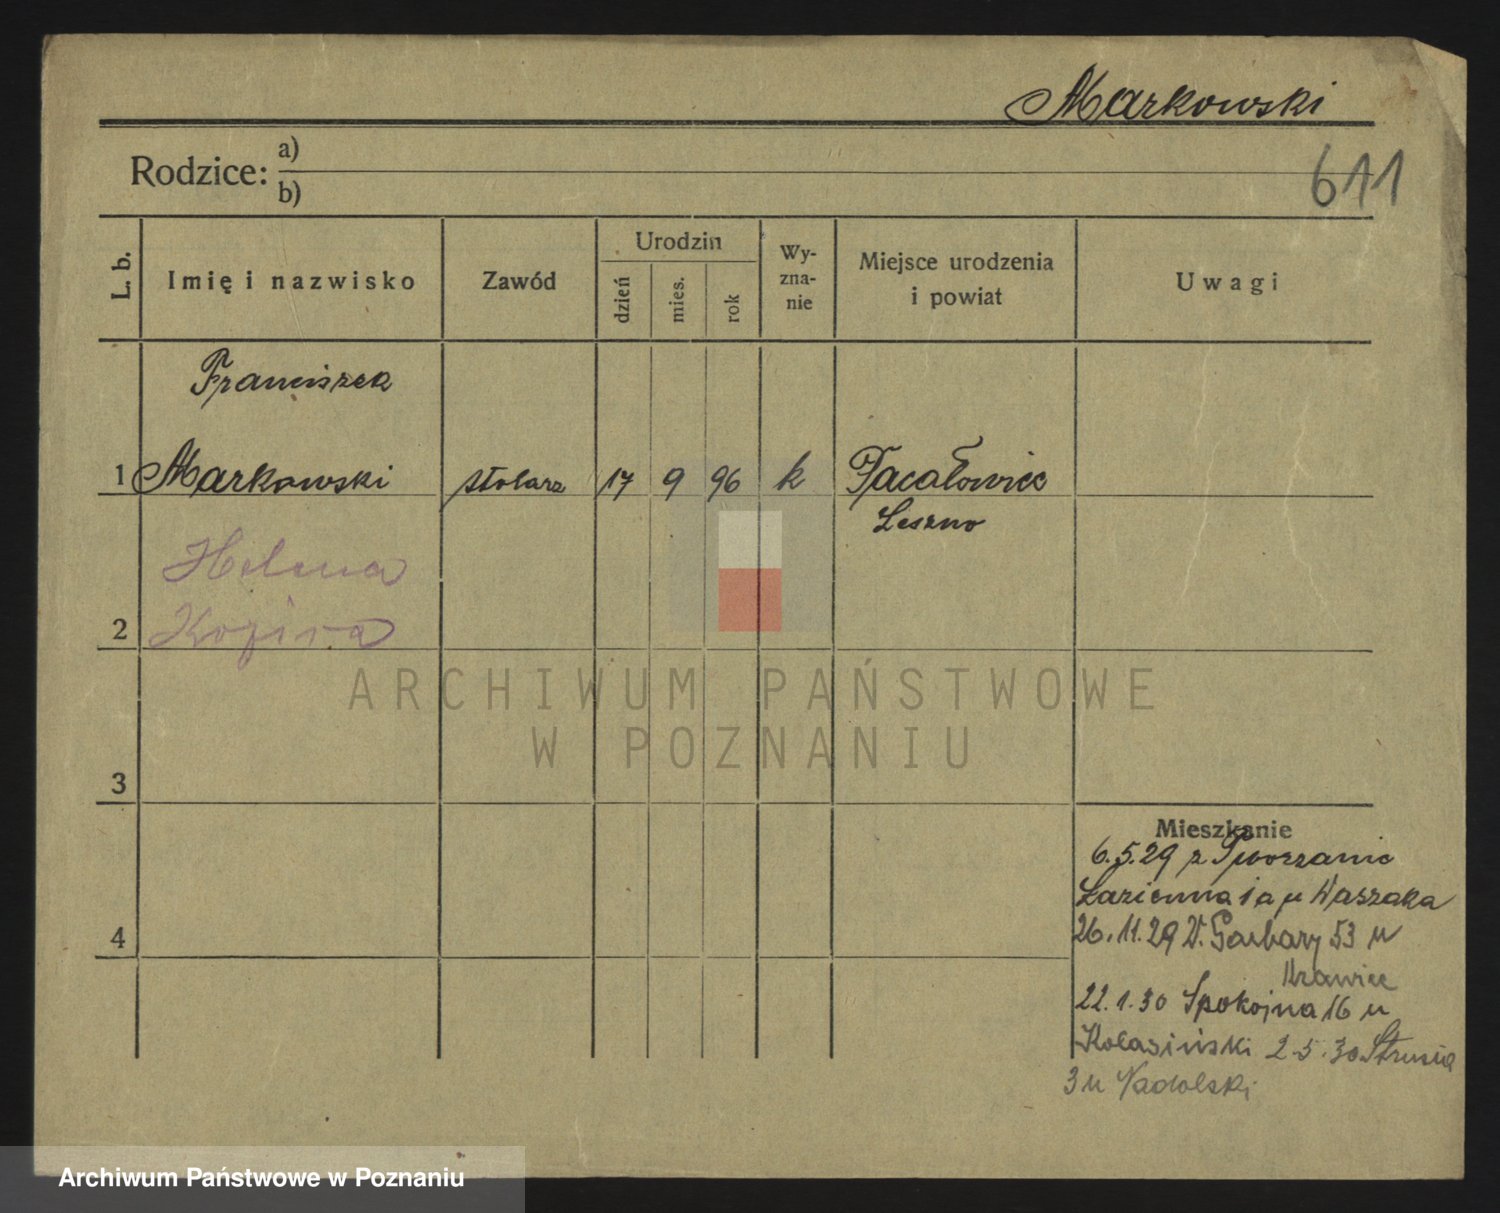 Markowski
Rodzice: a)
b)
611
L. b.
Imię i nazwisko
Zawód
Urodzin
dzień
mies.
rok
Wy-
zna-
nie
Miejsce urodzenia
i powiat
Uwagi
Franciszek
1 Markowski stolarz 17 9 96 k
Leszno
Helena
2
3
4
Mieszkanie
6.5.29 z Tworzanic
Łazienna 1a u Waszaka
26.11.29 W. Garbary 53 u
Krawiec
22.1.30 Spokojna 16 u
Kolasiński 2.5.30 Strusia
3 u Nadolski
ARCHIWUM PAŃSTWOWE
W POZNANIU
Archiwum Państwowe w Poznaniu